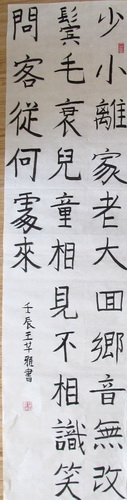 少小離家老大回鄉音無改
鬢毛衰兒童相見不相識笑
問客從何處來
壬辰王华雅書